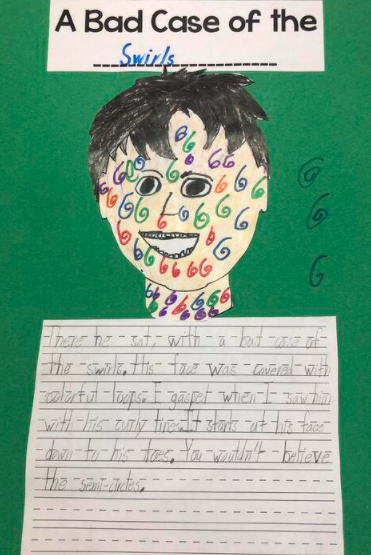 A Bad Case of the
Swirls
There he sat, with a bad case of
the swirls. His face was covered with
colorful loops. I gasped when I saw him
with his curly lines. It starts at his face
down to his toes. You wouldn't believe
the semi-circles.